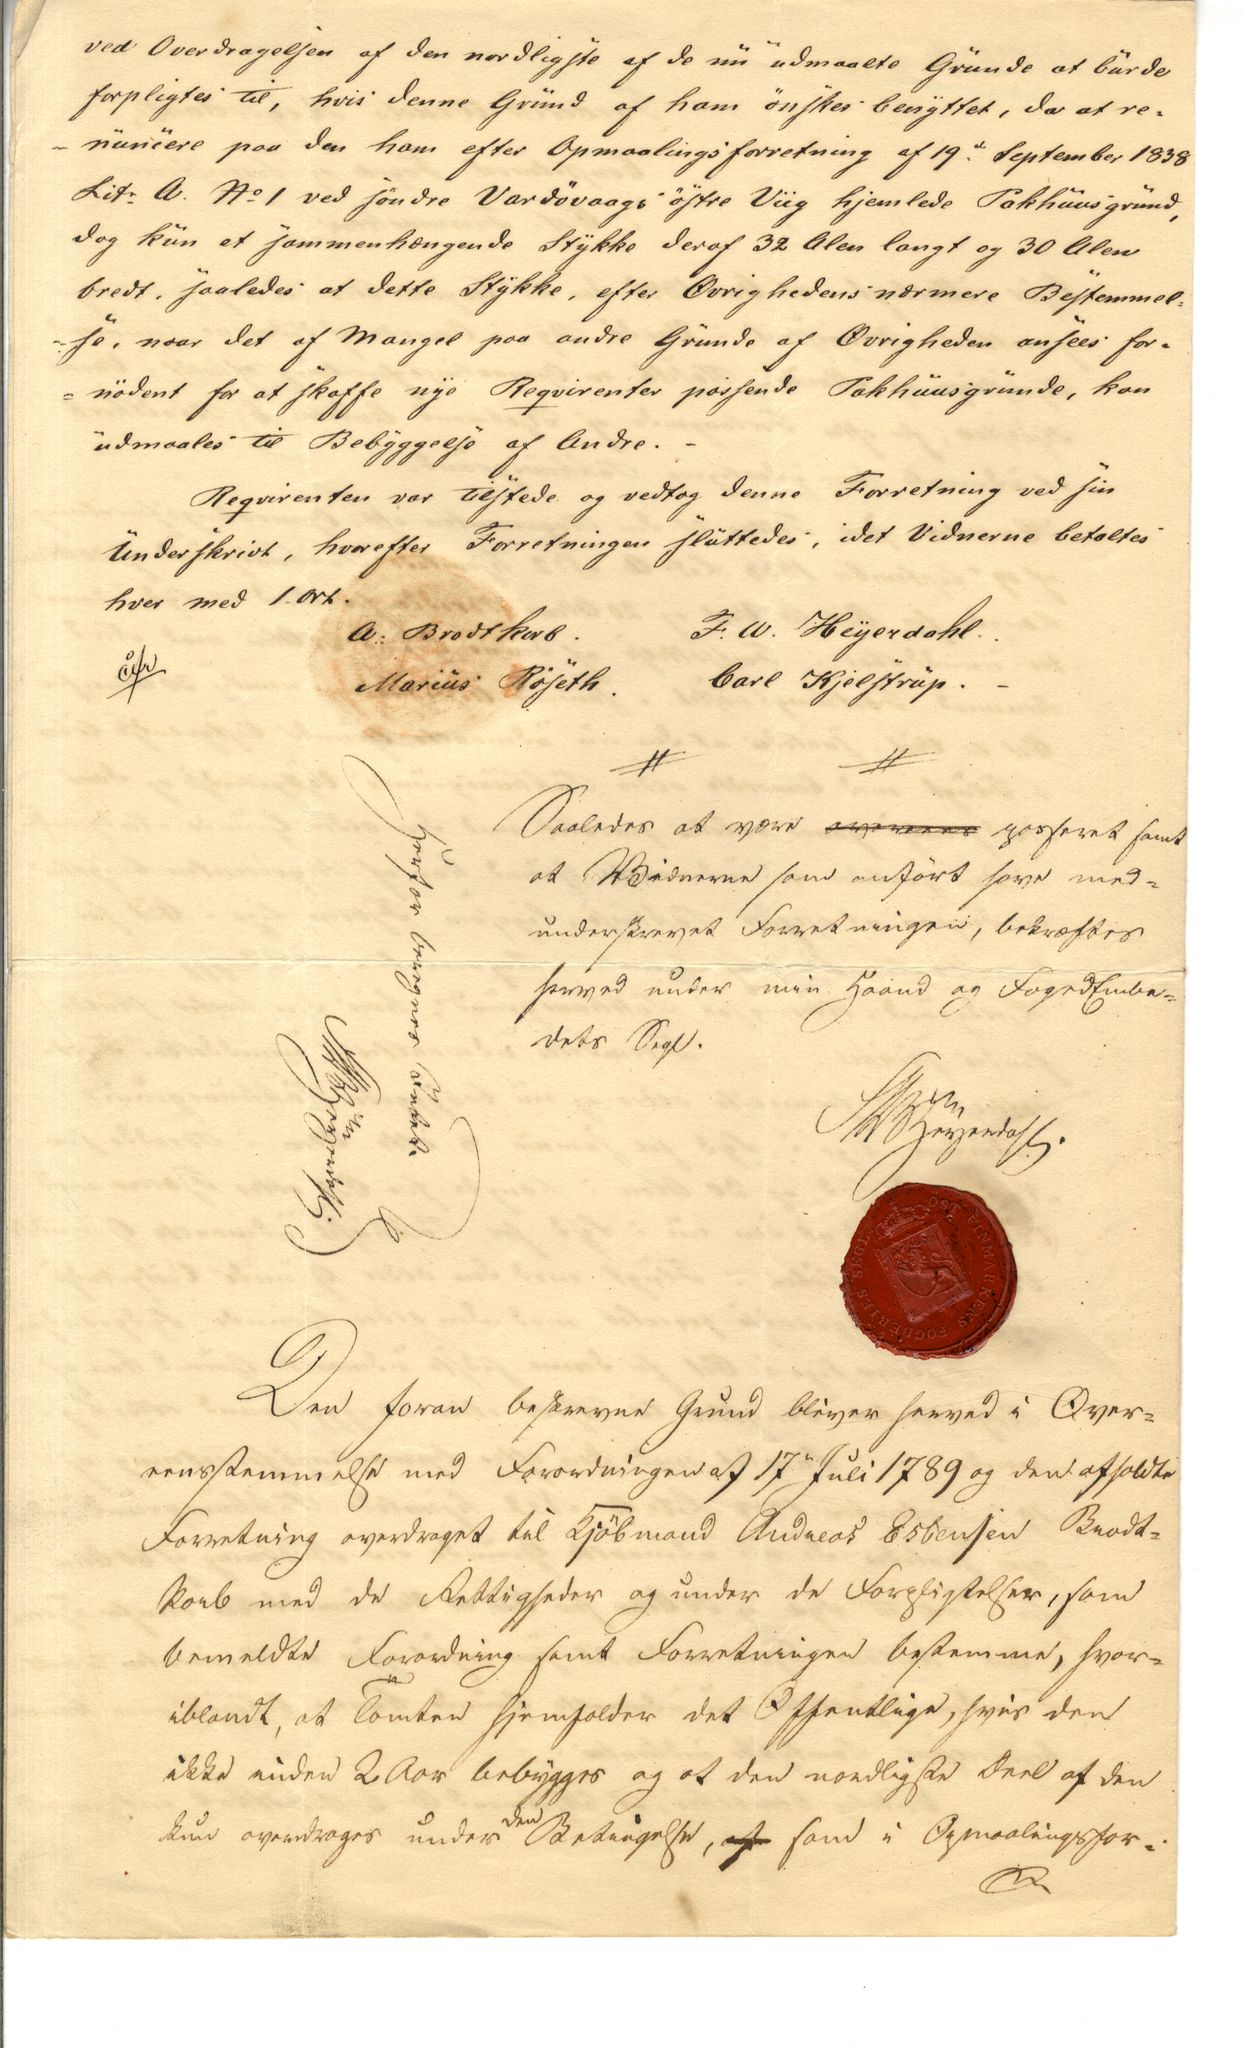 ved Overdragelsen af den nordligste af de nu udmaalte Grunde at burde
forpligtes til, hvis denne Grund af ham önskes benyttet, da at re-
- nuncere paa den ham efter Opmaalingsforretning af 19de September 1838
Litr. A. No 1 ved söndre Vardövaags östre Viig hjemlede Pakhuusgrund,
dog kun et sammenhængende Stykke deraf 32 Alen langt og 30 Alen
bredt, saaledes at dette Stykke, efter Øvrighedens nærmere Bestemmel-
- se, naar det af Mangel paa andre Grunde af Øvrigheden ansees for-
= nödent for at skaffe nye Reqvirenter passende Pakhuusgrunde, kan
udmaales til Bebyggelse af Andre. -
Reqvirenten var tilstede og vedtog denne Forretning ved sin
Underskrivt, hvorefter Forretningen sluttedes, idet Vidnerne betaltes
hver med 1 Ort.
A: Brodtkorb. F. W. Heyerdahl.
Marius Röseth. Carl Kjelstrup. -
Saaledes at være passeret samt
at Widnerne som anfört have med-
underskrevet Forretningen, bekræftes
herved under min Haand og FogedEmbe-
dets Segl.
FWHeyerdahl.
ÖST FINMARKENS FOGDERIES SEGL
Herfor beregnes Intet.
FWHeyerdahl
Den foran beskrevne Grund bliver herved i Over-
eensstemmelse med Forordningen af 17de Juli 1789 og den afholdte
Forretning overdraget til Kjöbmand Andreas Esbensen Brodt-
korb med de Rettigheder og under de Forpligtelser, som
bemeldte Forordning samt Forretningen bestemme, hvor-
iblandt, at Tomten hjemfalder det Offentlige, hvis den
ikke inden 2 Aar bebygges og at den nordligste Deel af den
kun overdrages under den Betingelse, som i Opmaalingsfor-